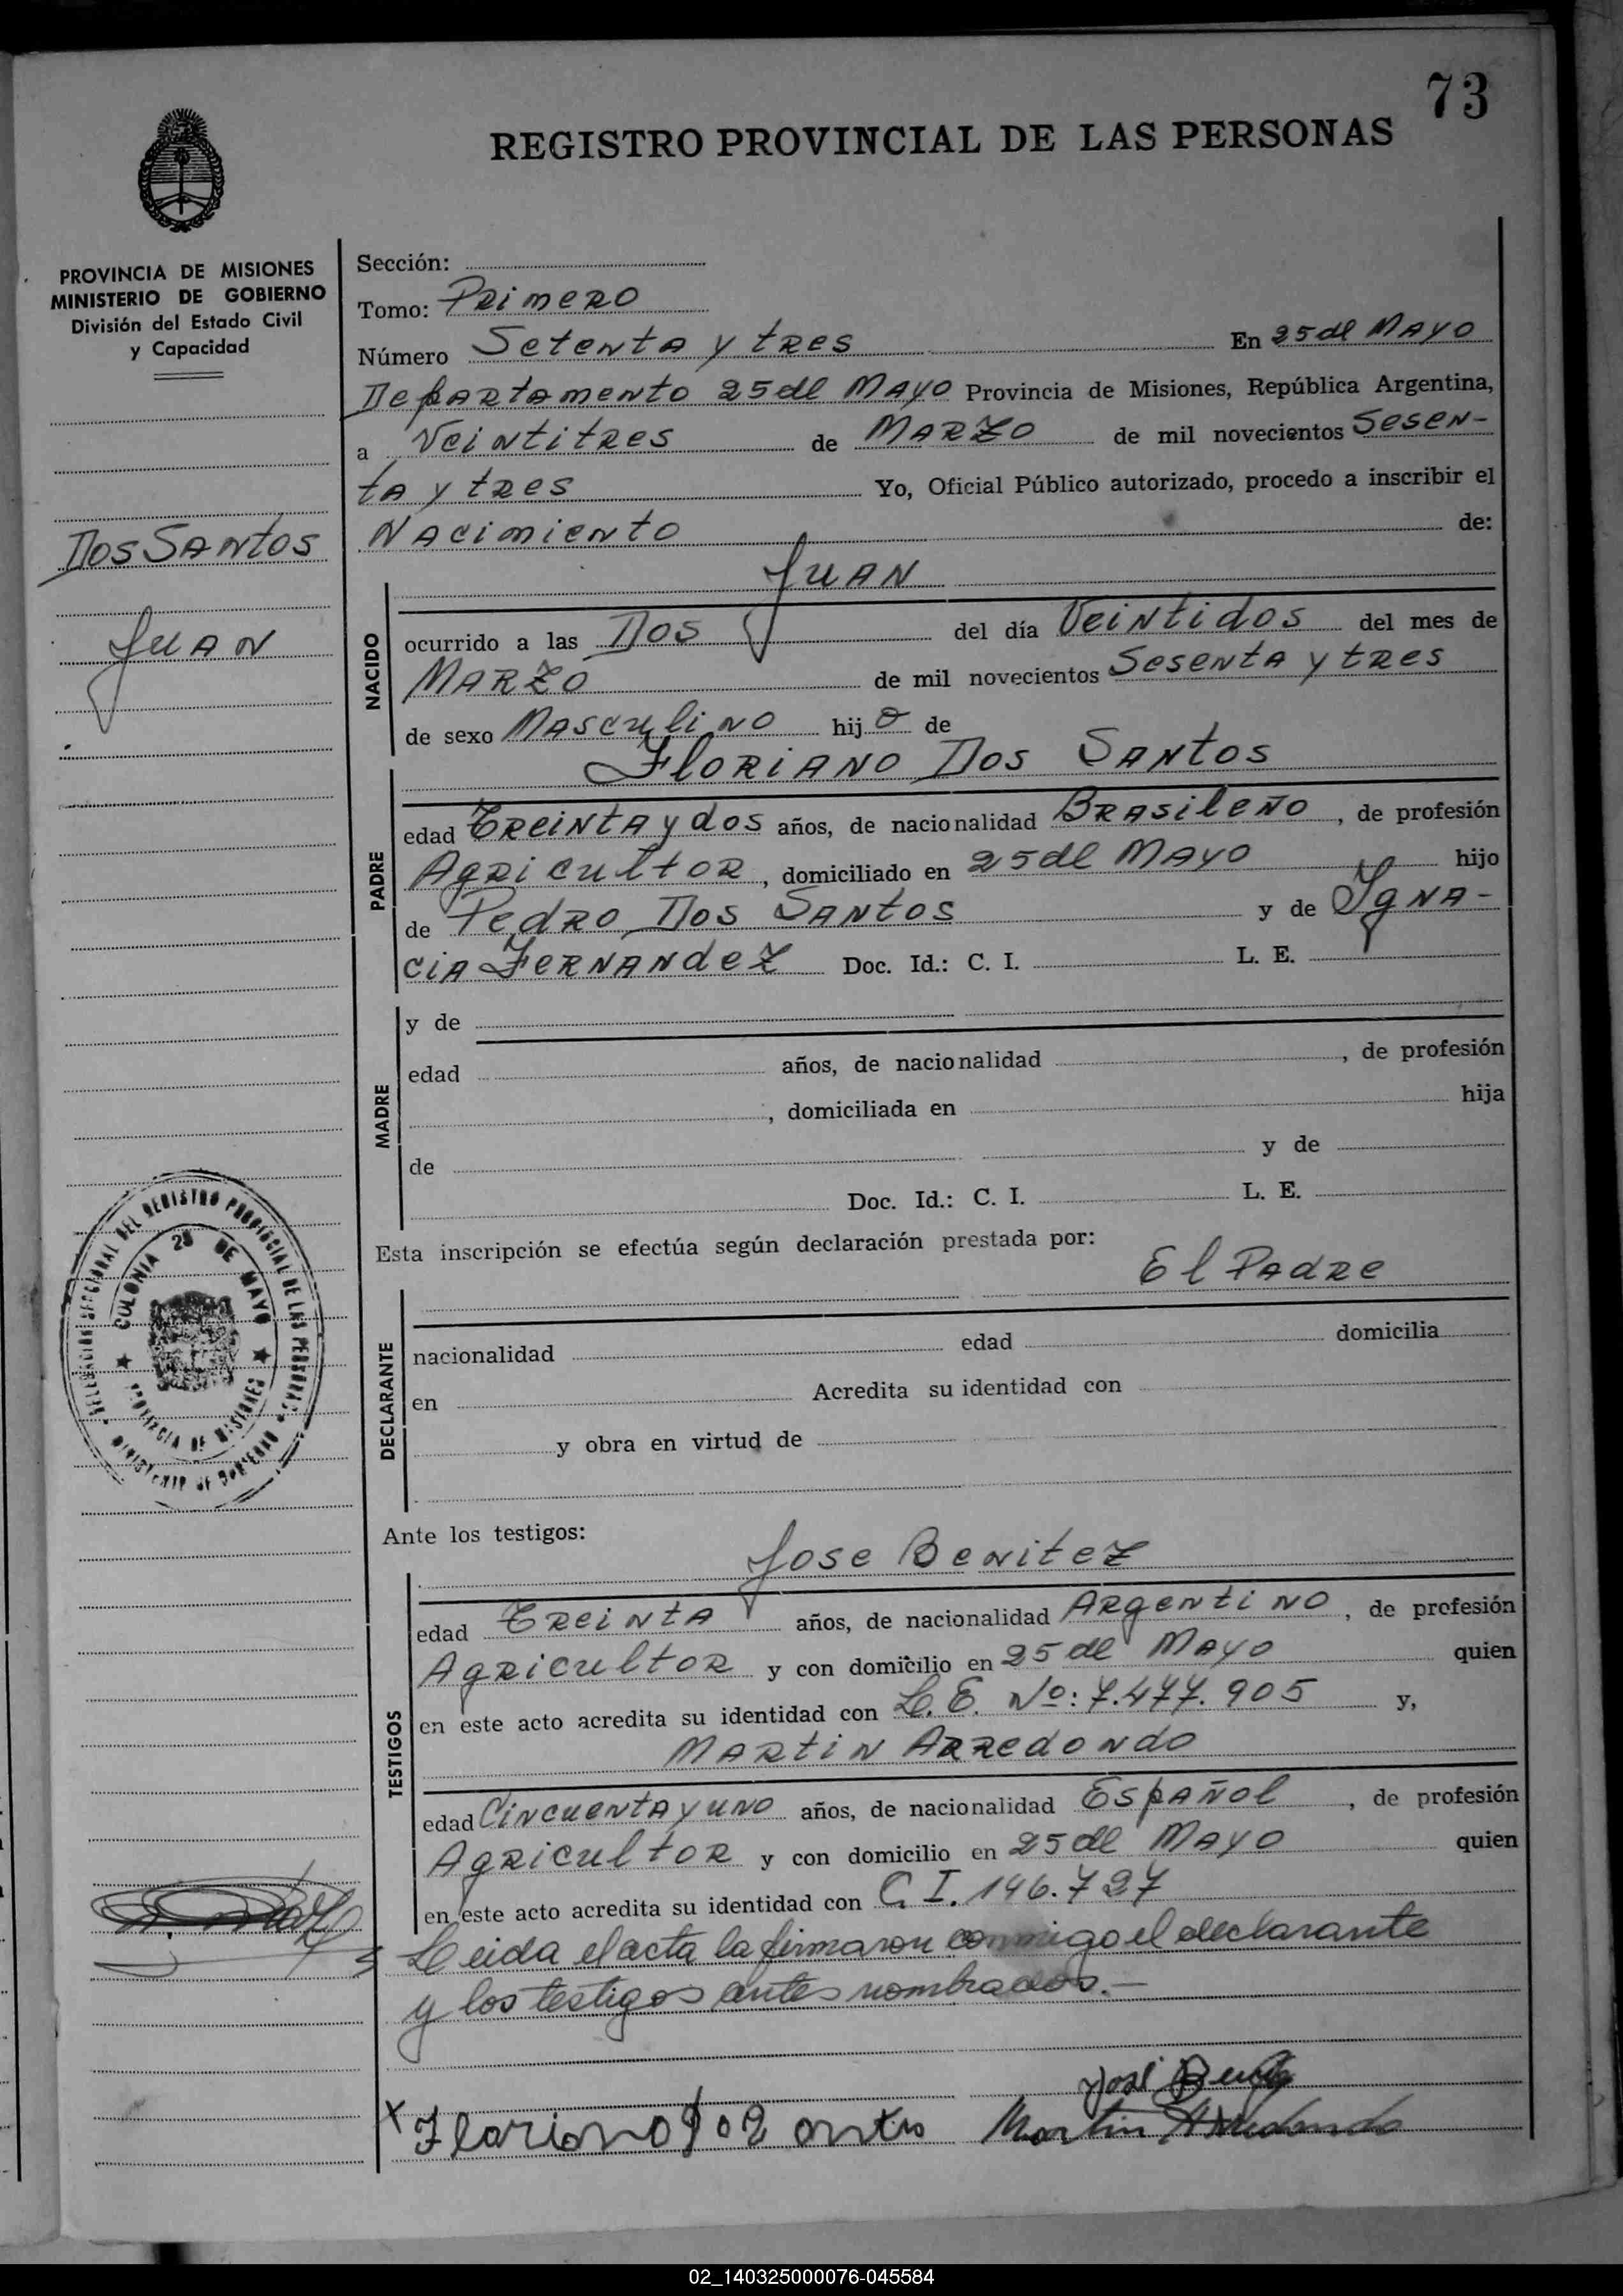 73
REGISTRO PROVINCIAL DE LAS PERSONAS
PROVINCIA DE MISIONES
MINISTERIO DE GOBIERNO
División del Estado Civil
y Capacidad
Dos Santos
Juan
Sección:
Tomo: Primero
Número Setenta y tres En 25 de Mayo
Departamento 25 de Mayo Provincia de Misiones, República Argentina,
a Veintitres de Marzo de mil novecientos Sesen-
ta y tres Yo, Oficial Público autorizado, procedo a inscribir el
Nacimiento de:
Juan
NACIDO
ocurrido a las Dos del día Veintidos del mes de
Marzo de mil novecientos Sesenta y tres
de sexo Masculino hijo de
Floriano Dos Santos
PADRE
edad Treinta y dos años, de nacionalidad Brasileño, de profesión
Agricultor, domiciliado en 25 de Mayo hijo
de Pedro Dos Santos y de Ygna-
cia Fernandez Doc. Id.: C. I. L. E.
MADRE
y de
edad años, de nacionalidad , de profesión
, domiciliada en hija
de y de
Doc. Id.: C. I. L. E.
Esta inscripción se efectúa según declaración prestada por:
El Padre
DECLARANTE
nacionalidad edad domicilia
en Acredita su identidad con
y obra en virtud de
DELEGACION SECCIONAL DEL REGISTRO PROVINCIAL DE LAS PERSONAS
COLONIA 25 DE MAYO
PROVINCIA DE MISIONES
MINISTERIO DE GOBIERNO
Ante los testigos:
Jose Benitez
TESTIGOS
edad Treinta años, de nacionalidad Argentino, de profesión
Agricultor y con domicilio en 25 de Mayo quien
en este acto acredita su identidad con L. E. Nº: 7.477.905 y,
Martin Arredondo
edad Cincuenta y uno años, de nacionalidad Español, de profesión
Agricultor y con domicilio en 25 de Mayo quien
en este acto acredita su identidad con C. I. 146.727
Leida el acta la firmaron conmigo el declarante
y los testigos antes nombrados.-
José
x Floriano Martin Arredondo
02_140325000076-045584